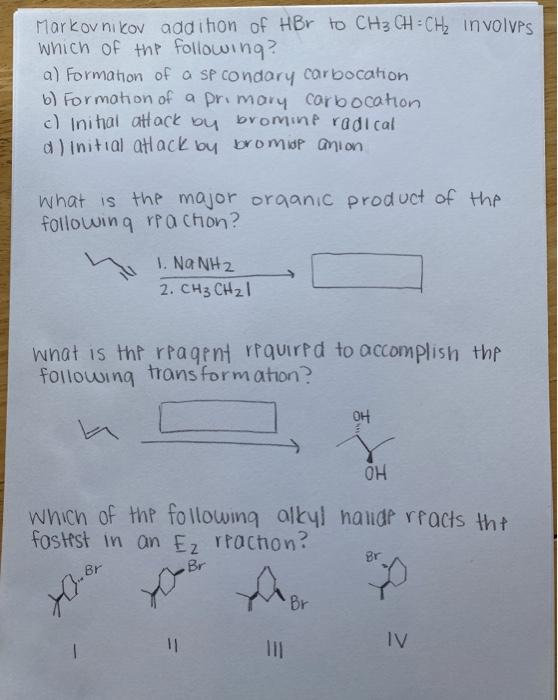 Markovnikov addition of HBr to CH3 CH=CH2 involves
which of the following?
a) Formation of a secondary carbocation
b) Formation of a primary carbocation
c) Initial attack by bromine radical
d) Initial attack by bromide anion
What is the major organic product of the
following reaction?
1. NaNH2
2. CH3 CH2I
What is the reagent required to accomplish the
following transformation?
OH
OH
Which of the following alkyl halide reacts the
fastest in an E2 reaction?
Br
Br
Br
Br
I
II
III
IV